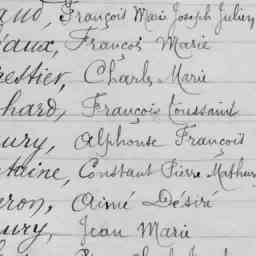 aud, François Marie Joseph Julien
eaux, François Marie
estier, Charles Marie
chard, François Toussaint
eury, Alphonse François
ntaine, Constant Pierre Mathurin
eron, Aimé Désiré
eury, Jean Marie